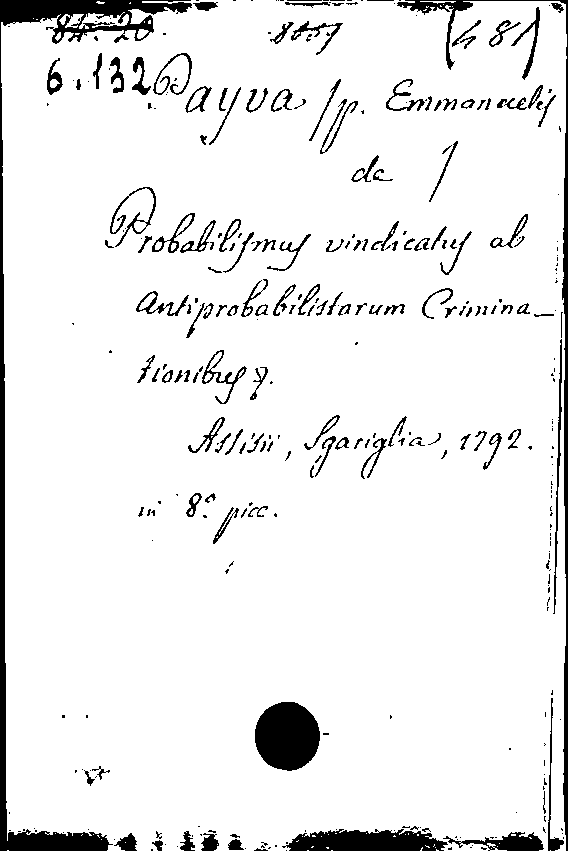 84. 20
(481)
6.132
Payva /p. Emmanuelis
de /
Probabilismus vindicatus ab
Antiprobabilistarum Crimina_
tionibus
Assisii, Sgariglia, 1792.
in 8.° picc.